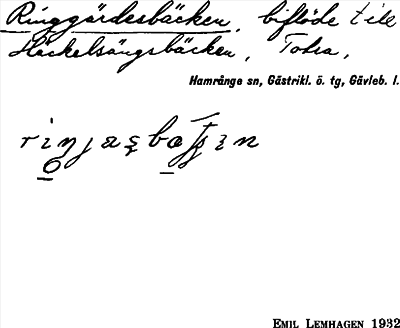 Ringgärdesbäcken, biflöde till
Häckelsängsbäcken, Tolsa,
Hamrånge sn, Gästrikl. ö. tg, Gävleb. l.
EMIL LEMHAGEN 1932